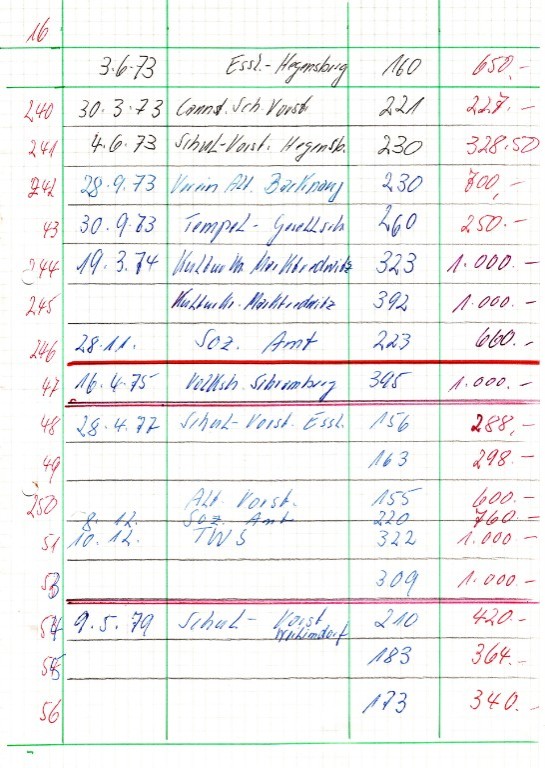 16
3.6.73 Essl.- Hegensburg 160 650.-
240 30.3.73 Cannst. Sch. Vorst 221 227.-
241 4.6.73 Schul-Vorst. Hegensb. 230 328.50
242 28.9.73 Verein Alt. Backnang 230 700,-
43 30.9.73 Tempel- Gesellsch 260 250.-
244 19.3.74 Marktredwitz 323 1.000.-
245 Marktredwitz 392 1.000.-
246 28.11. Soz. Amt 223 660.-
47 16.4.75 Volksch. Schramberg 395 1.000.-
48 28.4.77 Schul-Vorst. Essl. 156 288,-
49 163 298.-
250 Alt. Vorst. 155 600.-
8.12. Soz. Amt 220 760.-
51 10.12. TWS 322 1.000-
53 309 1.000-
54 9.5.79 Schul- Vorst 210 420.-
183 364.-
56 173 340.-